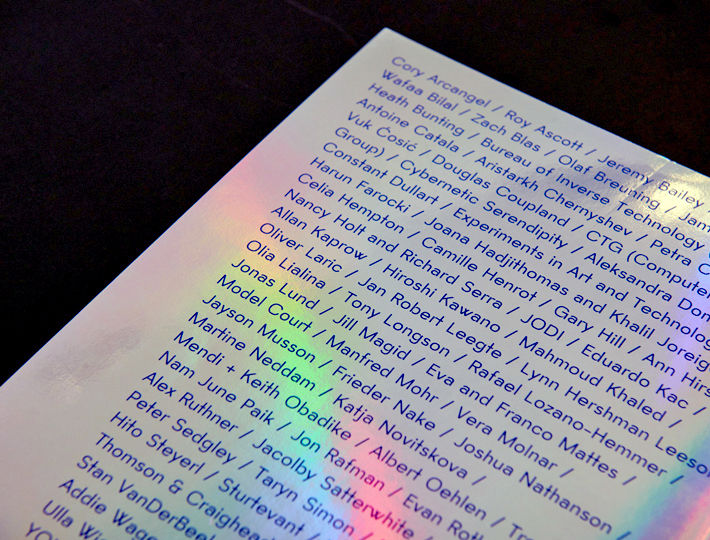 Cory Arcangel / Roy Ascott / Jeremy Bailey /
Wafaa Bilal / Zach Blas / Olaf Breuning /
Heath Bunting / Bureau of Inverse Technology
Antoine Catala / Aristarkh Chernyshev / Petra
Vuk Ćosić / Douglas Coupland / CTG (Computer
Group) / Cybernetic Serendipity / Aleksandra
Constant Dullart / Experiments in Art and Technology
Harun Farocki / Joana Hadjithomas and Khalil Joreige
Celia Hempton / Camille Henrot / Gary Hill / Ann
Nancy Holt and Richard Serra / JODI / Eduardo Kac /
Allan Kaprow / Hiroshi Kawano / Mahmoud Khaled /
Oliver Laric / Jan Robert Leegte / Lynn Hershman Leeson
Olia Lialina / Tony Longson / Rafael Lozano-Hemmer /
Jonas Lund / Jill Magid / Eva and Franco Mattes /
Model Court / Manfred Mohr / Vera Molnar /
Jayson Musson / Frieder Nake / Joshua Nathanson /
Martine Neddam / Katja Novitskova /
Mendi + Keith Obadike / Albert Oehlen /
Nam June Paik / Jon Rafman / Evan
Alex Ruthner / Jacolby Satterwhite /
Peter Sedgley / Taryn Simon /
Hito Steyerl / Sturtevant /
Thomson & Craighead
Stan VanDerBeek
Addie
Ulla